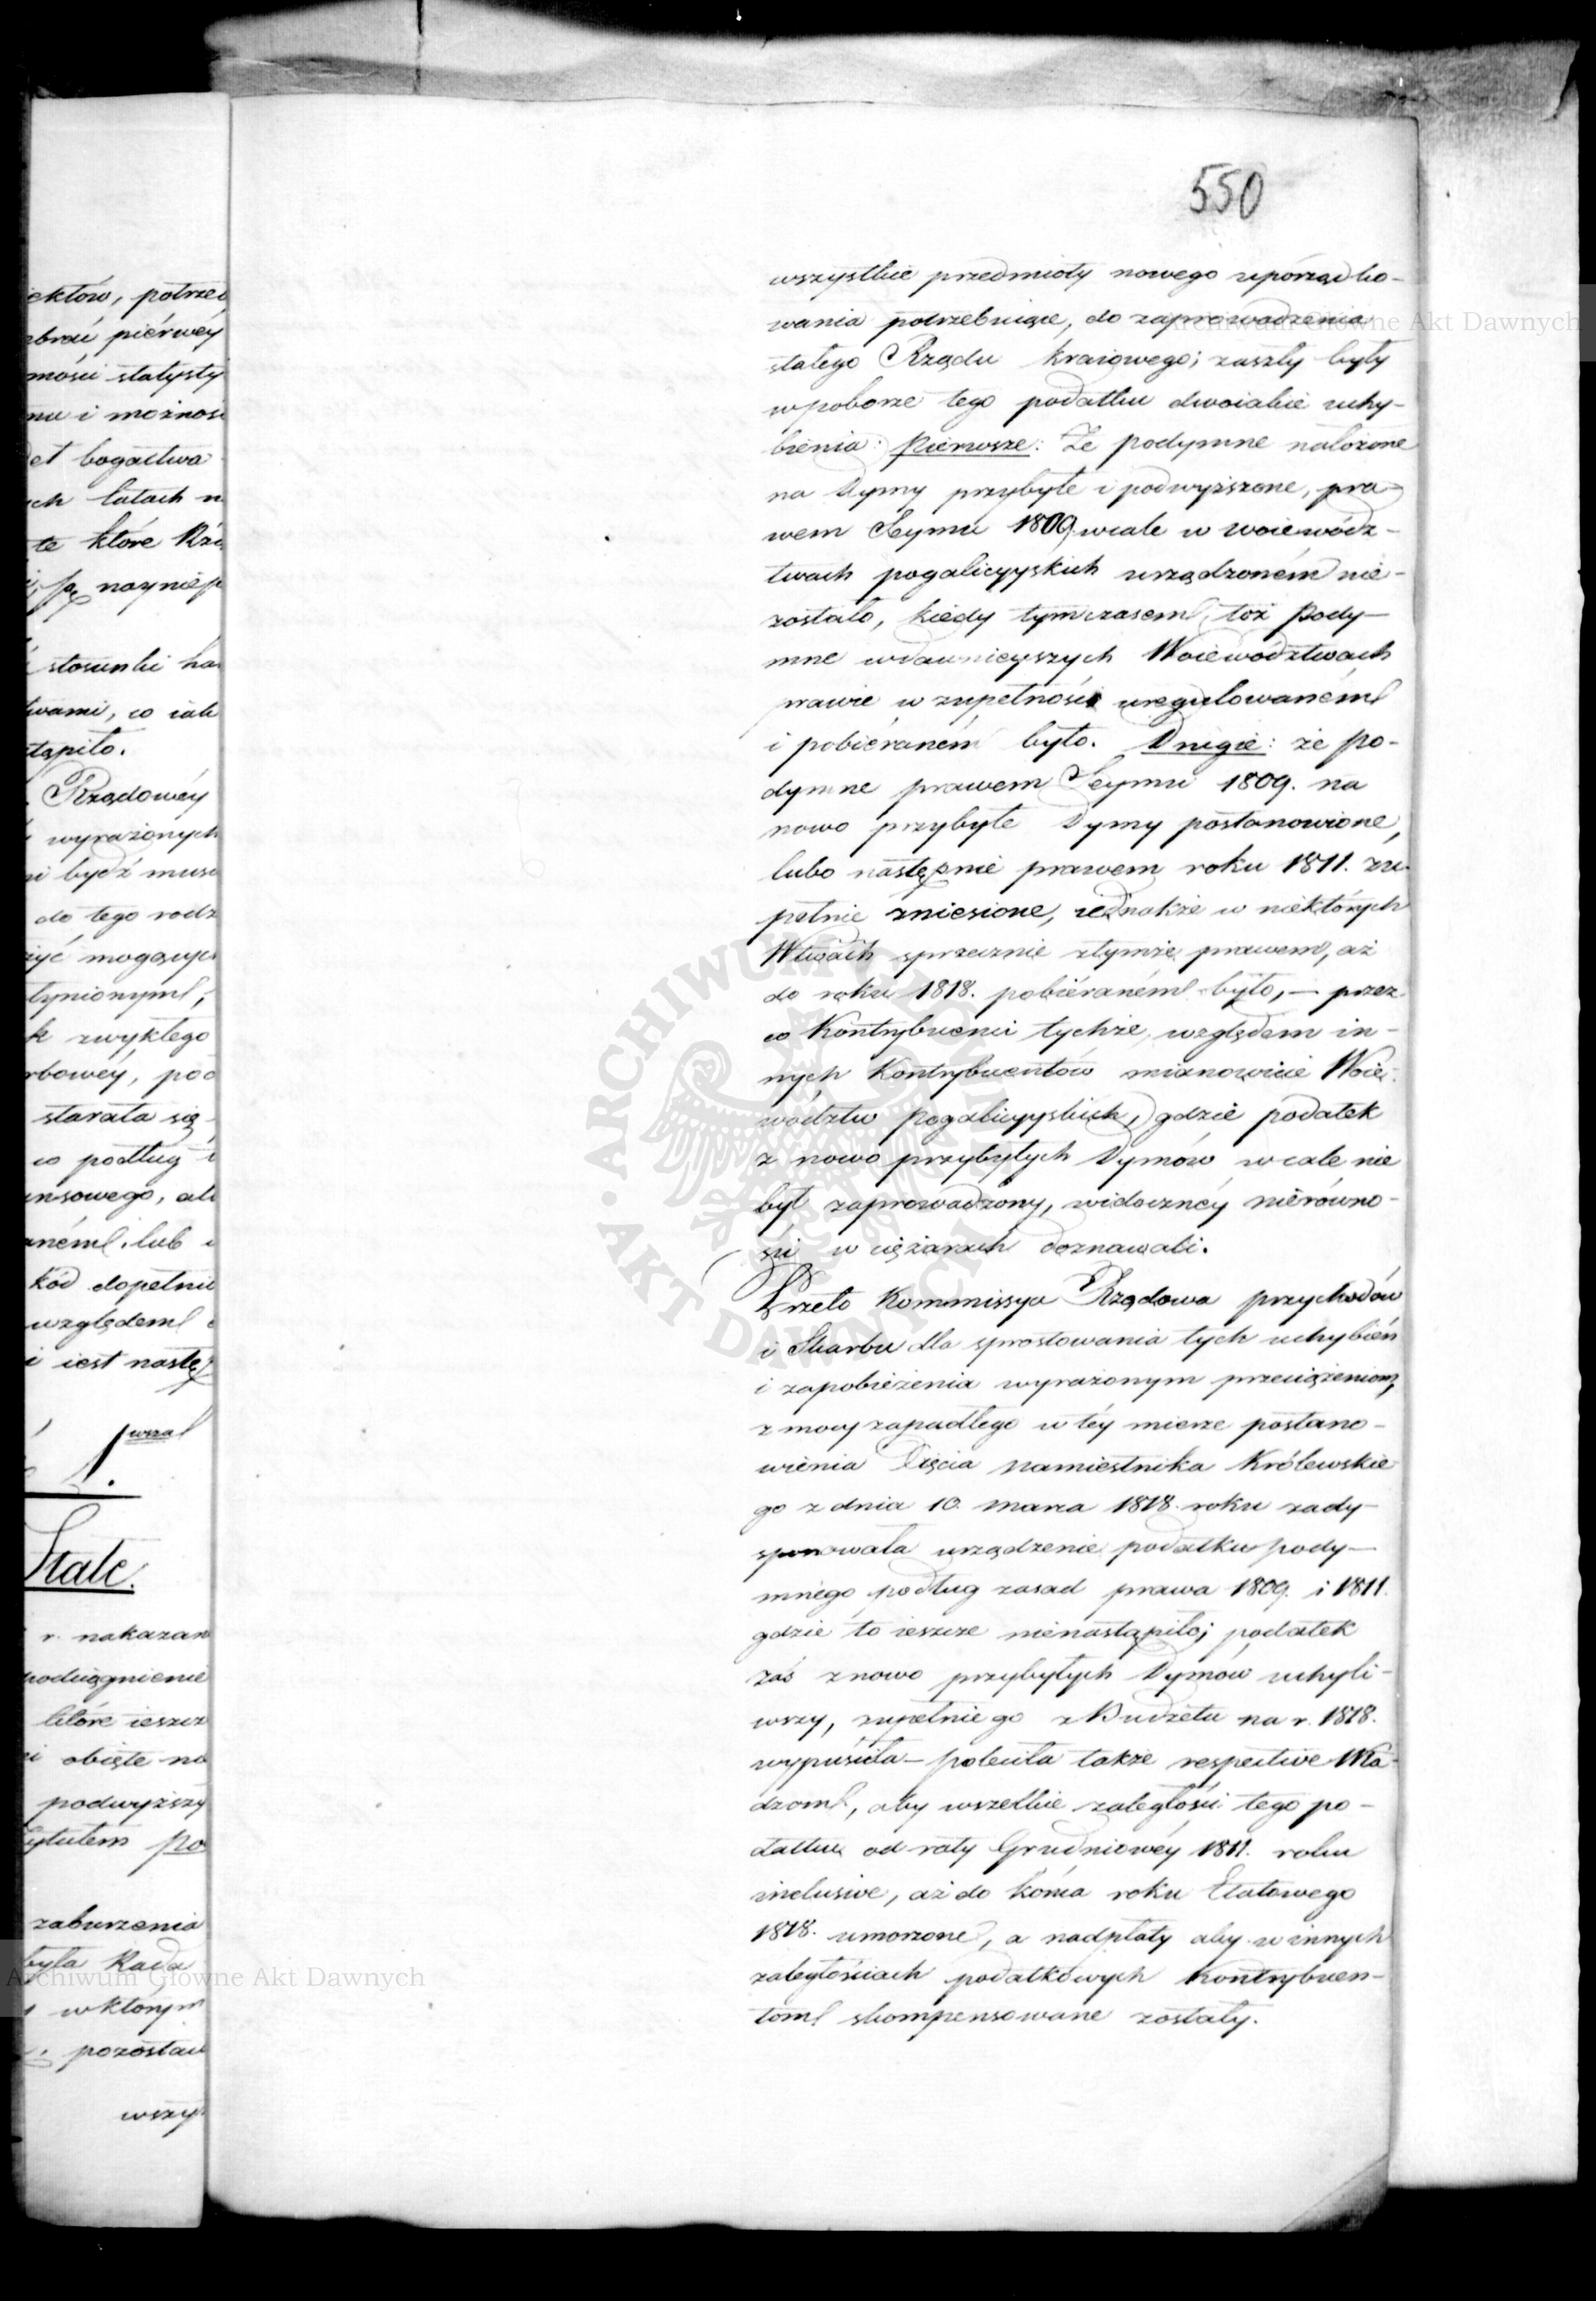 550
wszystkie przedmioty nowego uporządko-
wania potrzebuiące, do zaprowadzenia
stałego Rządu kraiowego; zaszły były
w poborze tego podatku dwoiakie uchy-
bienia: Pierwsze: Że podymne nałożone
na Dymy przybyłe i podwyższone, pra-
wem Seymu 1809 wcale w woiewódz-
twach pogalicyyskich urządzoném nie-
zostało, kiedy tymczasem, toż Pody-
mne w dawnieyszych Woiewództwach
prawie w zupełności uregulowaném
i pobiéraném było. Drugie: że po-
dymne prawem Seymu 1809. na
nowo przybyłe Dymy postanowione,
lubo następnie prawem roku 1811. zu-
pełnie zniesione, iednakże w niektórych
Wtwach sprzecznie z tymże prawem, aż
do roku 1818. pobiéraném było, — przez
co Kontrybuenci tychże, względem in-
nych Kontrybuentów mianowicie Woie-
wództw pogalicyyskich, gdzie podatek
z nowo przybyłych Dymów wcale nie
był zaprowadzony, widocznéy nierówno-
ści w ciężarach doznawali.
Przeto Kommissya Rządowa przychodów
i Skarbu dla sprostowania tych uchybień
i zapobieżenia wyrażonym przeciążeniom,
z mocy zapadłego w téy mierze postano-
wienia Xięcia Namiestnika Królewskie-
go z dnia 10. marca 1818. roku zady-
sponowała urządzenie podatku pody-
mnego podług zasad prawa 1809. i 1811.
gdzie to ieszcze nienastąpiło; podatek
zaś z nowo przybyłych Dymów uchyli-
wszy, zupełnie go z Budżetu na r. 1818.
wypuściła — poleciła także respective Wła-
dzom, aby wszelkie zaległości tego po-
datku od raty Grudniowéy 1811. roku
inclusive, aż do końca roku Etatowego
1818. umorzone, a nadpłaty aby w innych
zaległościach podatkowych Kontrybuen-
tom skompensowane zostały.
ektów, potrzeb
pierwéy
mości statysty
mu i możnoś
et bogactwa
ch latach n
te które Rzą
są nayniep
stosunki ha
twami, co iak
tąpiło.
Rządowéy
wyrażonych
i bydź musi
do tego rodz
żyć mogących
k zwykłego
rbowéy, pod
starała się
co podług
nsowego, ale
aném lub
kód dopełnie
względem
i iest nastę
1.
Stałe.
r. nakazan
podciągnienie
które ieszcz
i obięte na
podwyższy
tytułem Po
zaburzenia
była Rada
w którym
pozostaw
wszy-
Archiwum Główne Akt Dawnych
Archiwum Główne Akt Dawnych
ARCHIWUM GŁÓWNE
AKT DAWNYCH